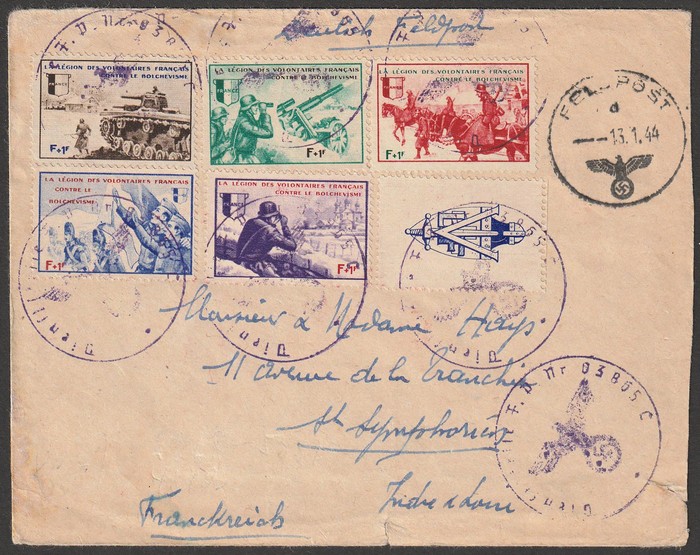 Deutsch Feldpost
F. P. Nr 03865 C
LA LÉGION DES VOLONTAIRES FRANÇAIS
CONTRE LE BOLCHEVISME
FRANCE
F+1F
LA LÉGION DES VOLONTAIRES FRANÇAIS
CONTRE LE BOLCHEVISME
FRANCE
F+1F
LA LÉGION DES VOLONTAIRES FRANÇAIS
CONTRE LE BOLCHEVISME
FRANCE
F+1F
FELDPOST
d
13.1.44
LA LÉGION DES VOLONTAIRES FRANÇAIS
CONTRE LE
BOLCHEVISME
F+1F
LA LÉGION DES VOLONTAIRES FRANÇAIS
CONTRE LE
BOLCHEVISME
F+1F
03865 C
Monsieur & Madame Hays
11 avenue de la Tranchée
St Symphorien
Indre & Loire
Franckreich
F. P. Nr 03865 C